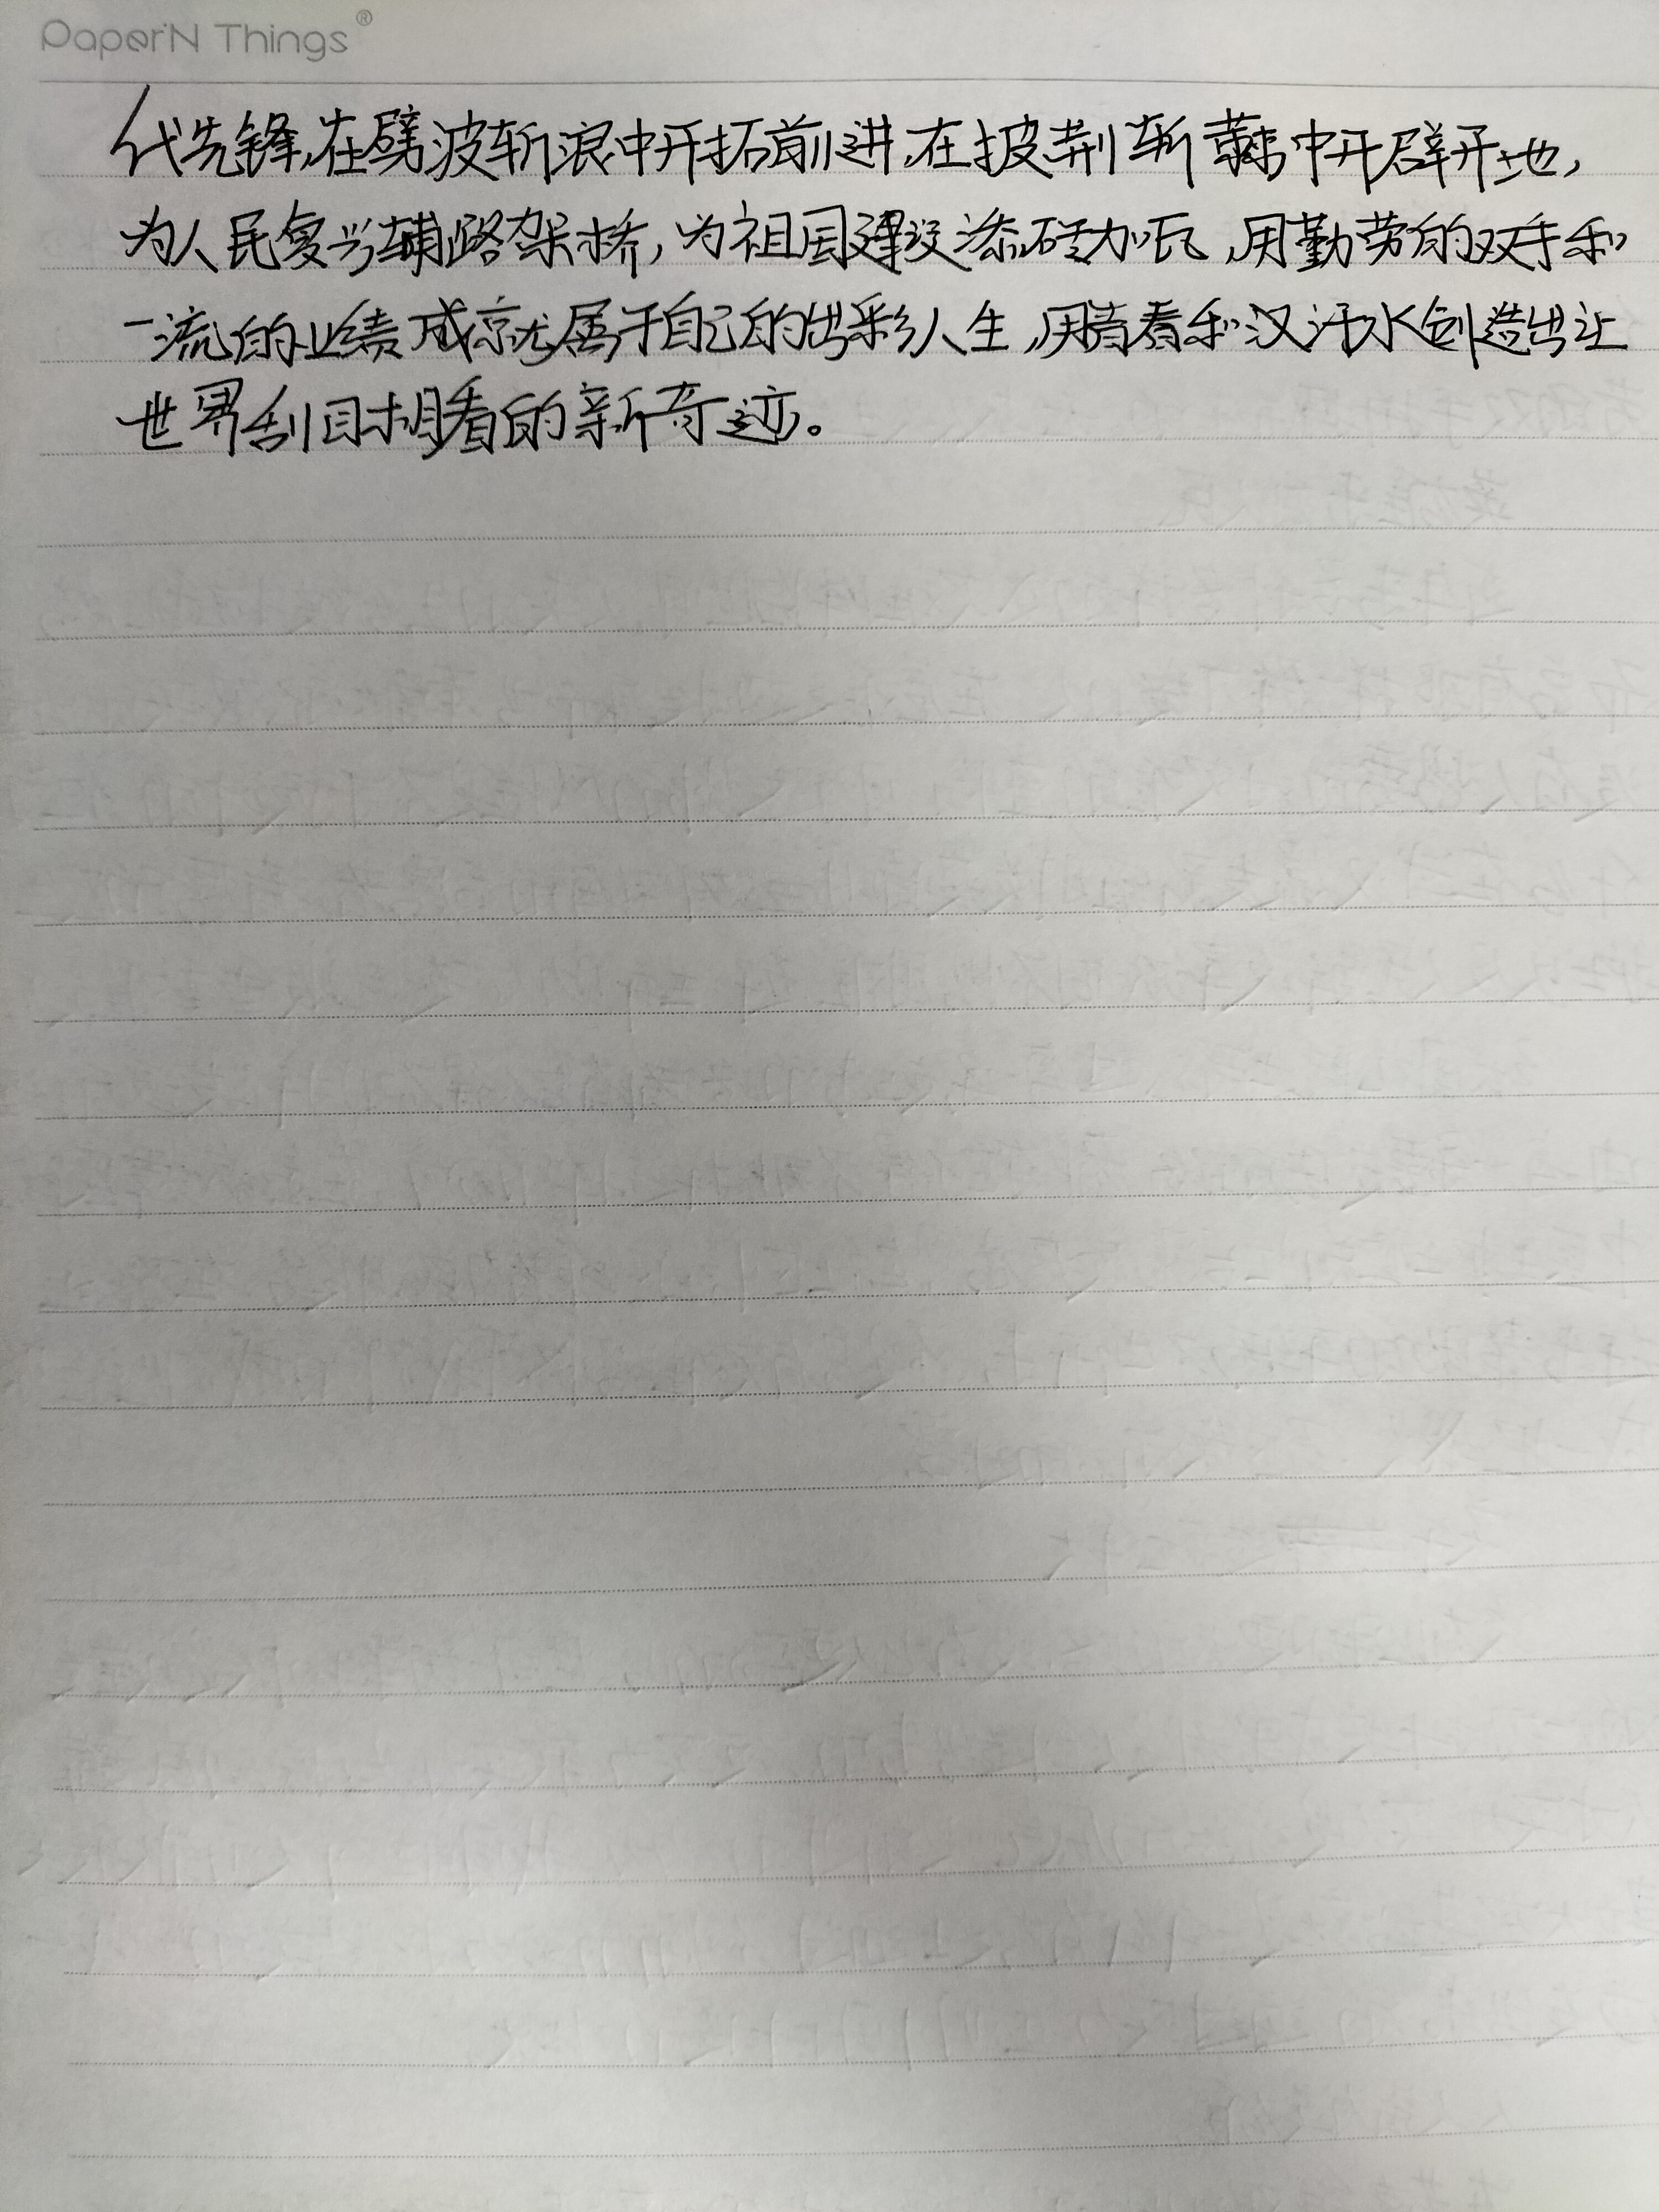 PaperN Things®
代先锋,在劈波斩浪中开拓前进,在披荆斩棘中开辟开地,
为人民复兴辅路架桥,为祖国建设添砖加瓦,用勤劳的双手和
一流的业绩成就属于自己的出彩人生,用青春和汉汗水创造出让
世界刮目相看的新奇迹。